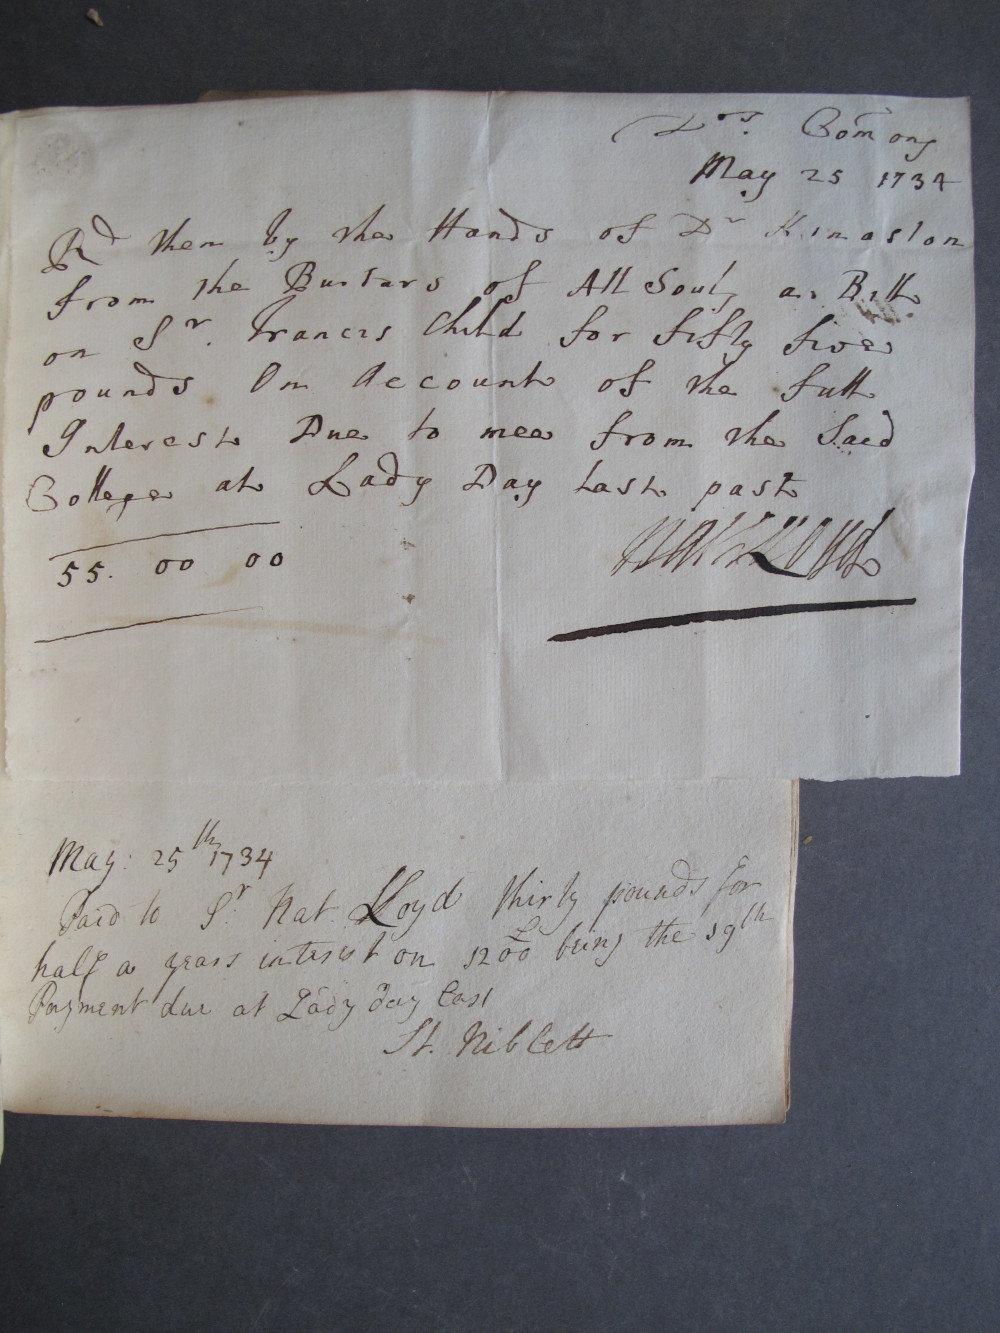 Drs. Com̄ons
May 25 1734
Rd then by the Hands of Dr Kinaston
from the Bursars of All Souls a Bill
on Sr. Francis Child for fifty five
pounds On Account of the full
Interest Due to mee from the Said
College at Lady Day Last past
55. 00 00
Nat Lloyd
May: 25th 1734
Paid to Sr. Nat Lloyd thirty pounds for
half a years interest on 1200£ being the 19th
Payment due at Lady day last
St. Niblett